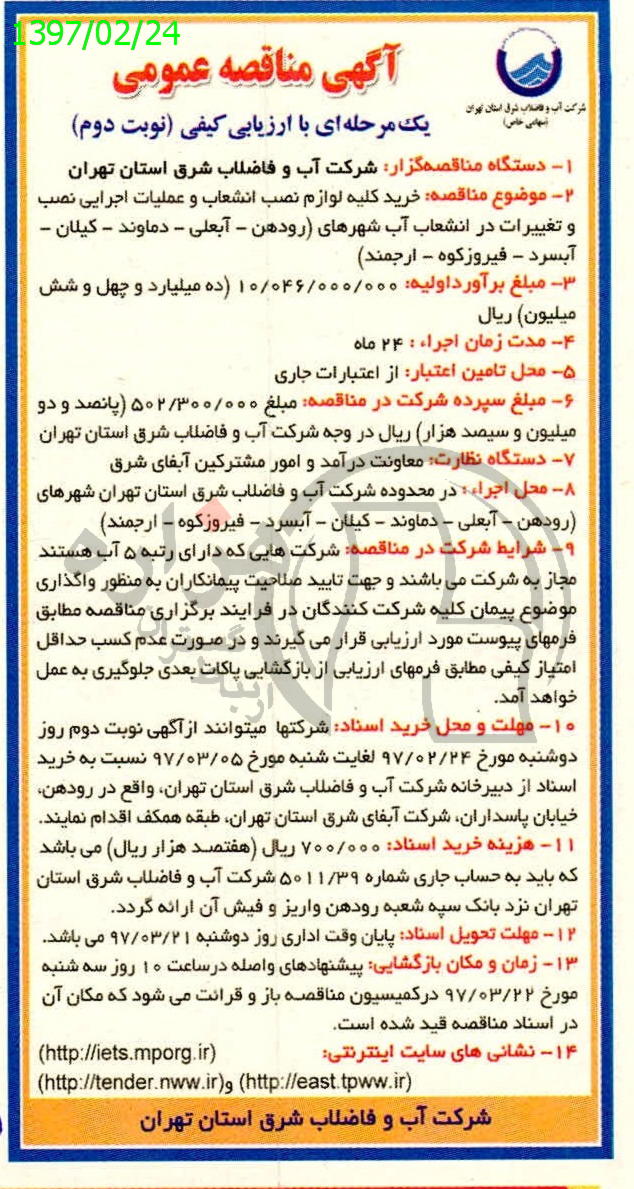 1397/02/24
شرکت آب و فاضلاب شرق استان تهران
(سهامی خاص)
آگهی مناقصه عمومی
یک مرحله‌ای با ارزیابی کیفی (نوبت دوم)
۱- دستگاه مناقصه‌گزار: شرکت آب و فاضلاب شرق استان تهران
۲- موضوع مناقصه: خرید کلیه لوازم نصب انشعاب و عملیات اجرایی نصب
و تغییرات در انشعاب آب شهرهای (رودهن - آبعلی - دماوند - کیلان -
آبسرد - فیروزکوه - ارجمند)
۳- مبلغ برآورد اولیه: ۱۰/۰۴۶/۰۰۰/۰۰۰ (ده میلیارد و چهل و شش
میلیون) ریال
۴- مدت زمان اجراء : ۲۴ ماه
۵- محل تامین اعتبار: از اعتبارات جاری
۶- مبلغ سپرده شرکت در مناقصه: مبلغ ۵۰۲/۳۰۰/۰۰۰ (پانصد و دو
میلیون و سیصد هزار) ریال در وجه شرکت آب و فاضلاب شرق استان تهران
۷- دستگاه نظارت: معاونت درآمد و امور مشترکین آبفای شرق
۸- محل اجراء : در محدوده شرکت آب و فاضلاب شرق استان تهران شهرهای
(رودهن - آبعلی - دماوند - کیلان - آبسرد - فیروزکوه - ارجمند)
۹- شرایط شرکت در مناقصه: شرکت هایی که دارای رتبه ۵ آب هستند
مجاز به شرکت می باشند و جهت تایید صلاحیت پیمانکاران به منظور واگذاری
موضوع پیمان کلیه شرکت کنندگان در فرایند برگزاری مناقصه مطابق
فرمهای پیوست مورد ارزیابی قرار می گیرند و در صورت عدم کسب حداقل
امتیاز کیفی مطابق فرمهای ارزیابی از بازگشایی پاکات بعدی جلوگیری به عمل
خواهد آمد.
۱۰- مهلت و محل خرید اسناد: شرکتها میتوانند از آگهی نوبت دوم روز
دوشنبه مورخ ۹۷/۰۲/۲۴ لغایت شنبه مورخ ۹۷/۰۳/۰۵ نسبت به خرید
اسناد از دبیرخانه شرکت آب و فاضلاب شرق استان تهران، واقع در رودهن،
خیابان پاسداران، شرکت آبفای شرق استان تهران، طبقه همکف اقدام نمایند.
۱۱- هزینه خرید اسناد: ۷۰۰/۰۰۰ ریال (هفتصد هزار ریال) می باشد
که باید به حساب جاری شماره ۵۰۱۱/۳۹ شرکت آب و فاضلاب شرق استان
تهران نزد بانک سپه شعبه رودهن واریز و فیش آن ارائه گردد.
۱۲- مهلت تحویل اسناد: پایان وقت اداری روز دوشنبه ۹۷/۰۳/۲۱ می باشد.
۱۳- زمان و مکان بازگشایی: پیشنهادهای واصله درساعت ۱۰ روز سه شنبه
مورخ ۹۷/۰۳/۲۲ درکمیسیون مناقصه باز و قرائت می شود که مکان آن
در اسناد مناقصه قید شده است.
۱۴- نشانی های سایت اینترنتی: (http://iets.mporg.ir)
(http://east.tpww.ir) و(http://tender.nww.ir)
شرکت آب و فاضلاب شرق استان تهران